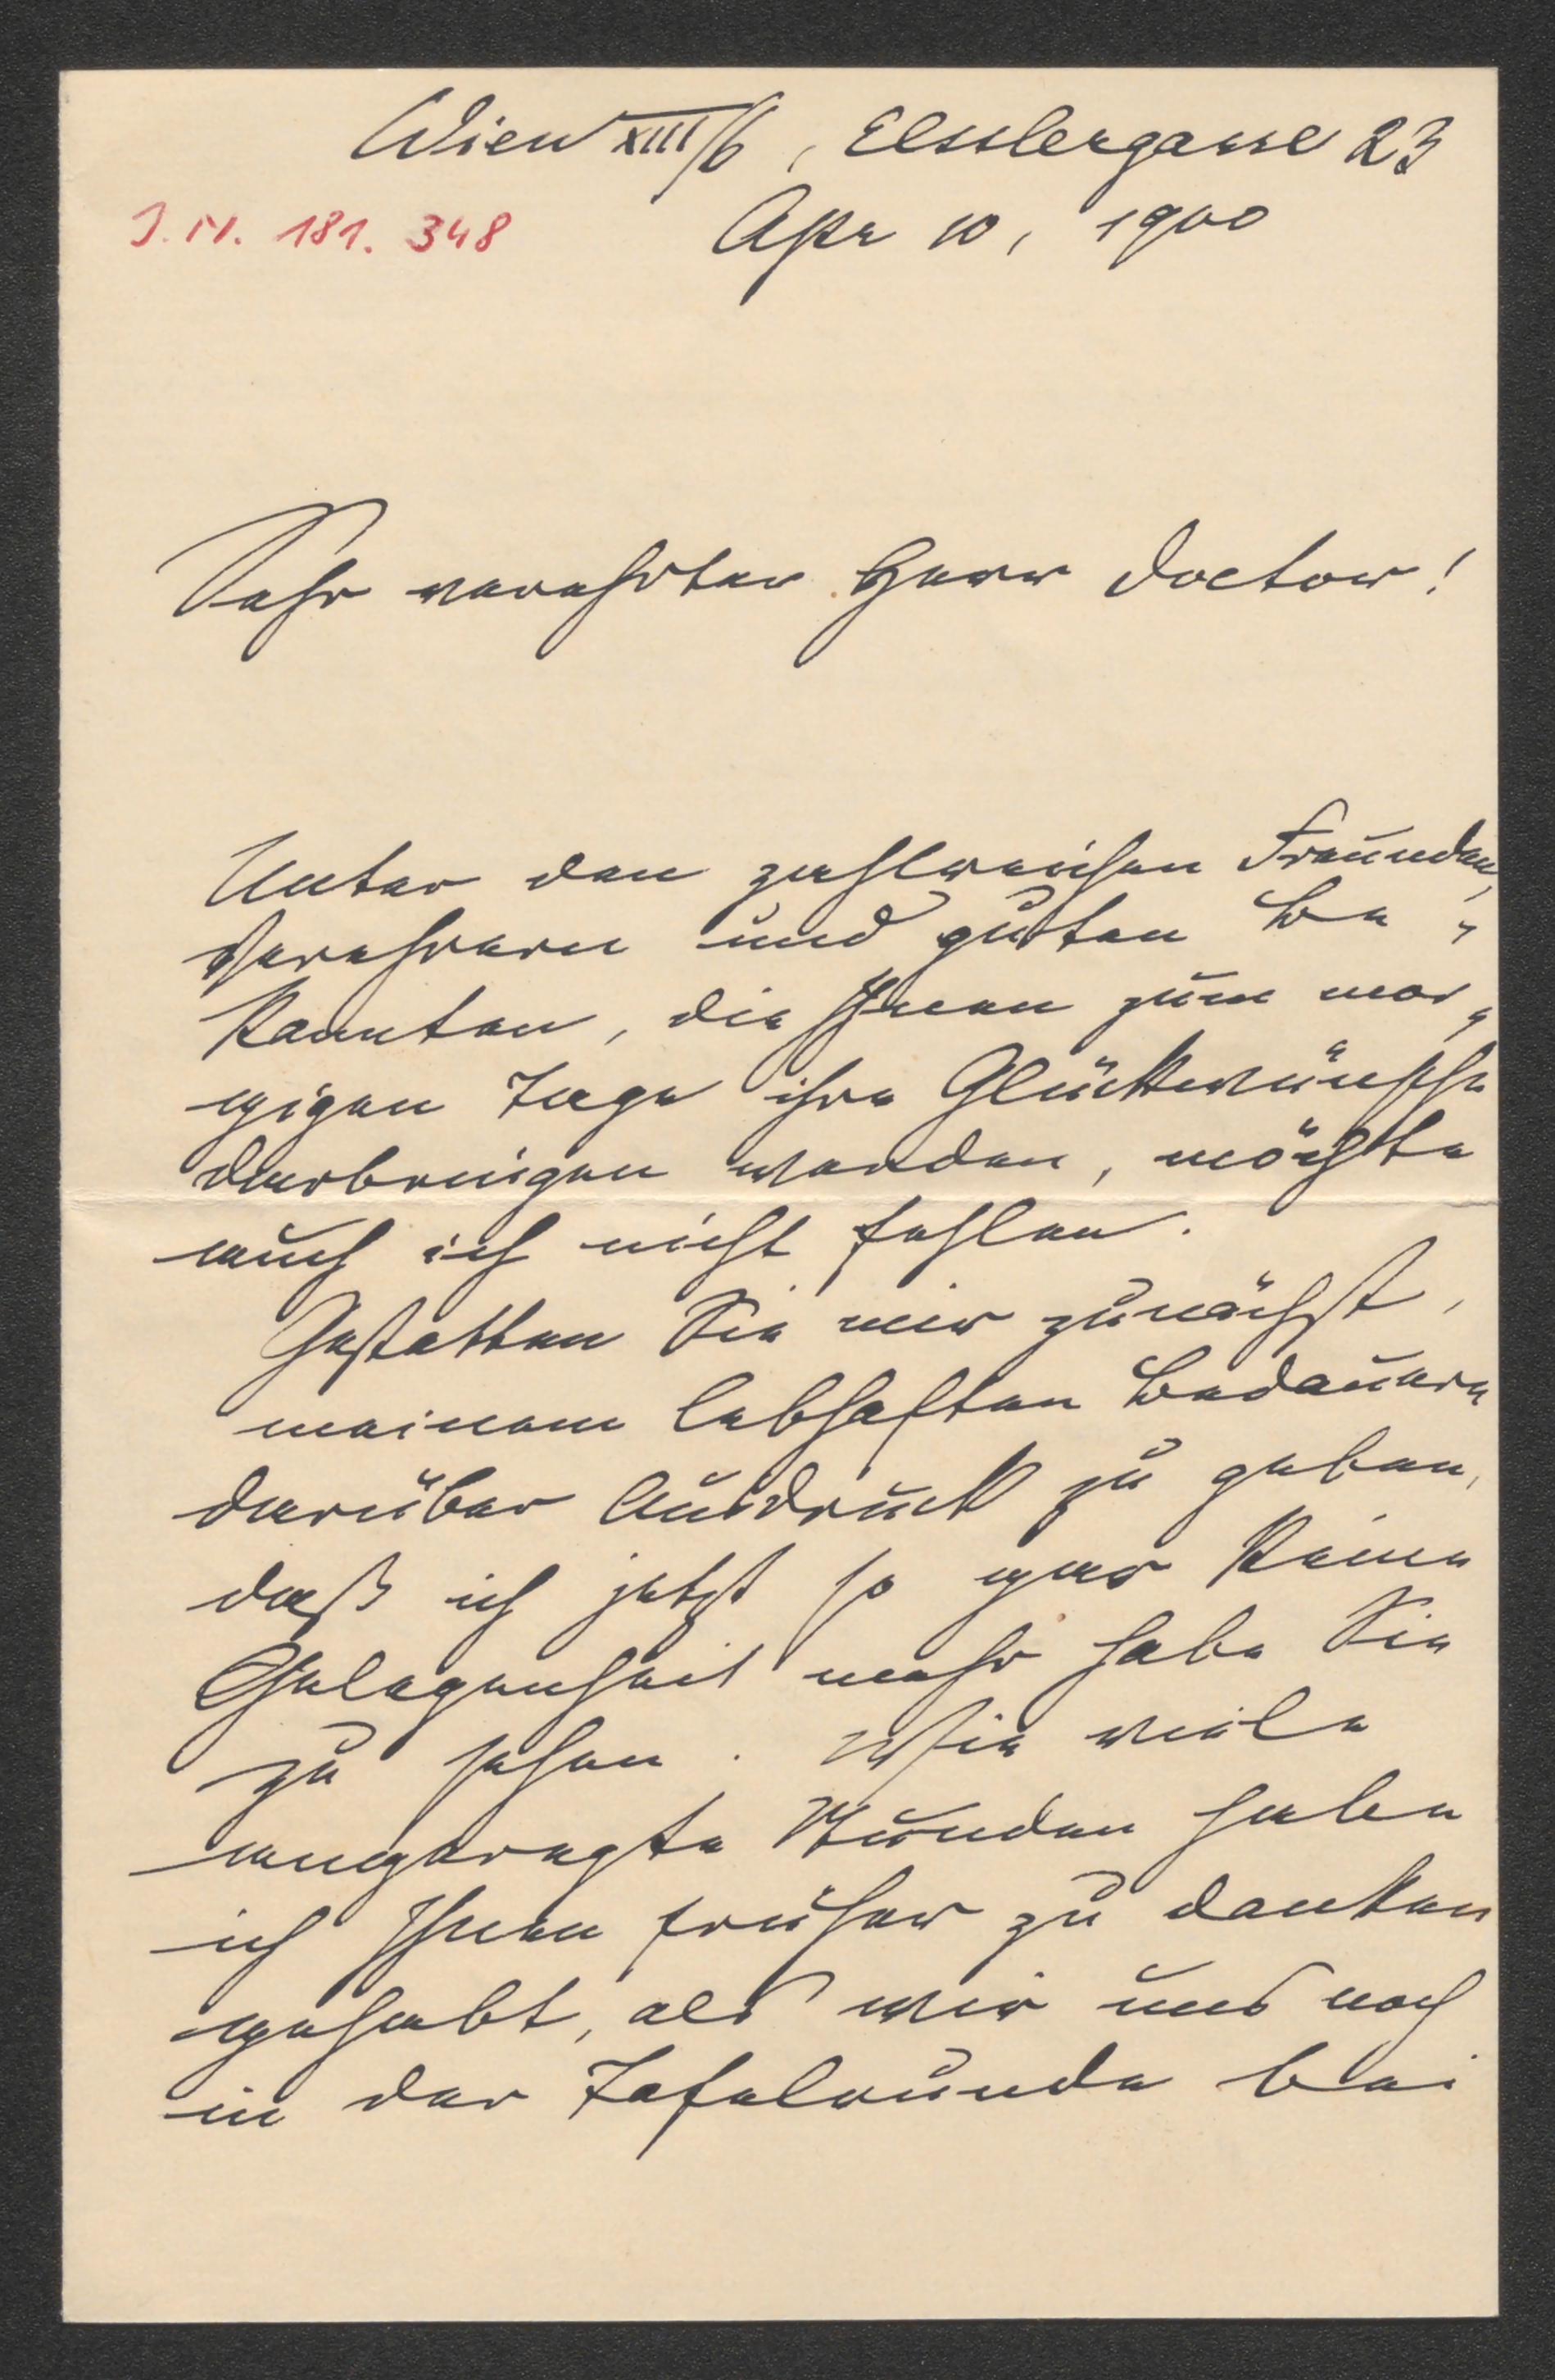 Wien XIII/6, Elsslergasse 23
J.N. 181.348
Apr 10, 1900
Sehr verehrter Herr Doctor!
Unter den zahlreichen Freunden,
Verehrern und guten Be-
kannten, die Ihnen zum mor-
gigen Tage ihre Glückwünsche
darbringen werden, möchte
auch ich nicht fehlen.
Gestatten Sie mir zunächst,
meinem lebhaften Bedauern
darüber Ausdruck zu geben,
daß ich jetzt so gar keine
Gelegenheit mehr habe Sie
zu sehen. Wie viele
angeregte Stunden habe
ich Ihnen früher zu danken
gehabt, als wir uns noch
in der Tafelrunde bei